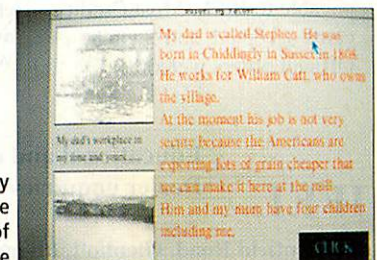 My dad is called Stephen. He was
born in Chiddingly in Sussex in 1808.
He works for William Catt, who owns
the village.
At the moment his job is not very
secure because the Americans are
exporting lots of grain cheaper that
we can make it here at the mill.
Him and my mum have four children
including me.
My dad's workplace in
my time and yours......
CLICK
y
e
of
e